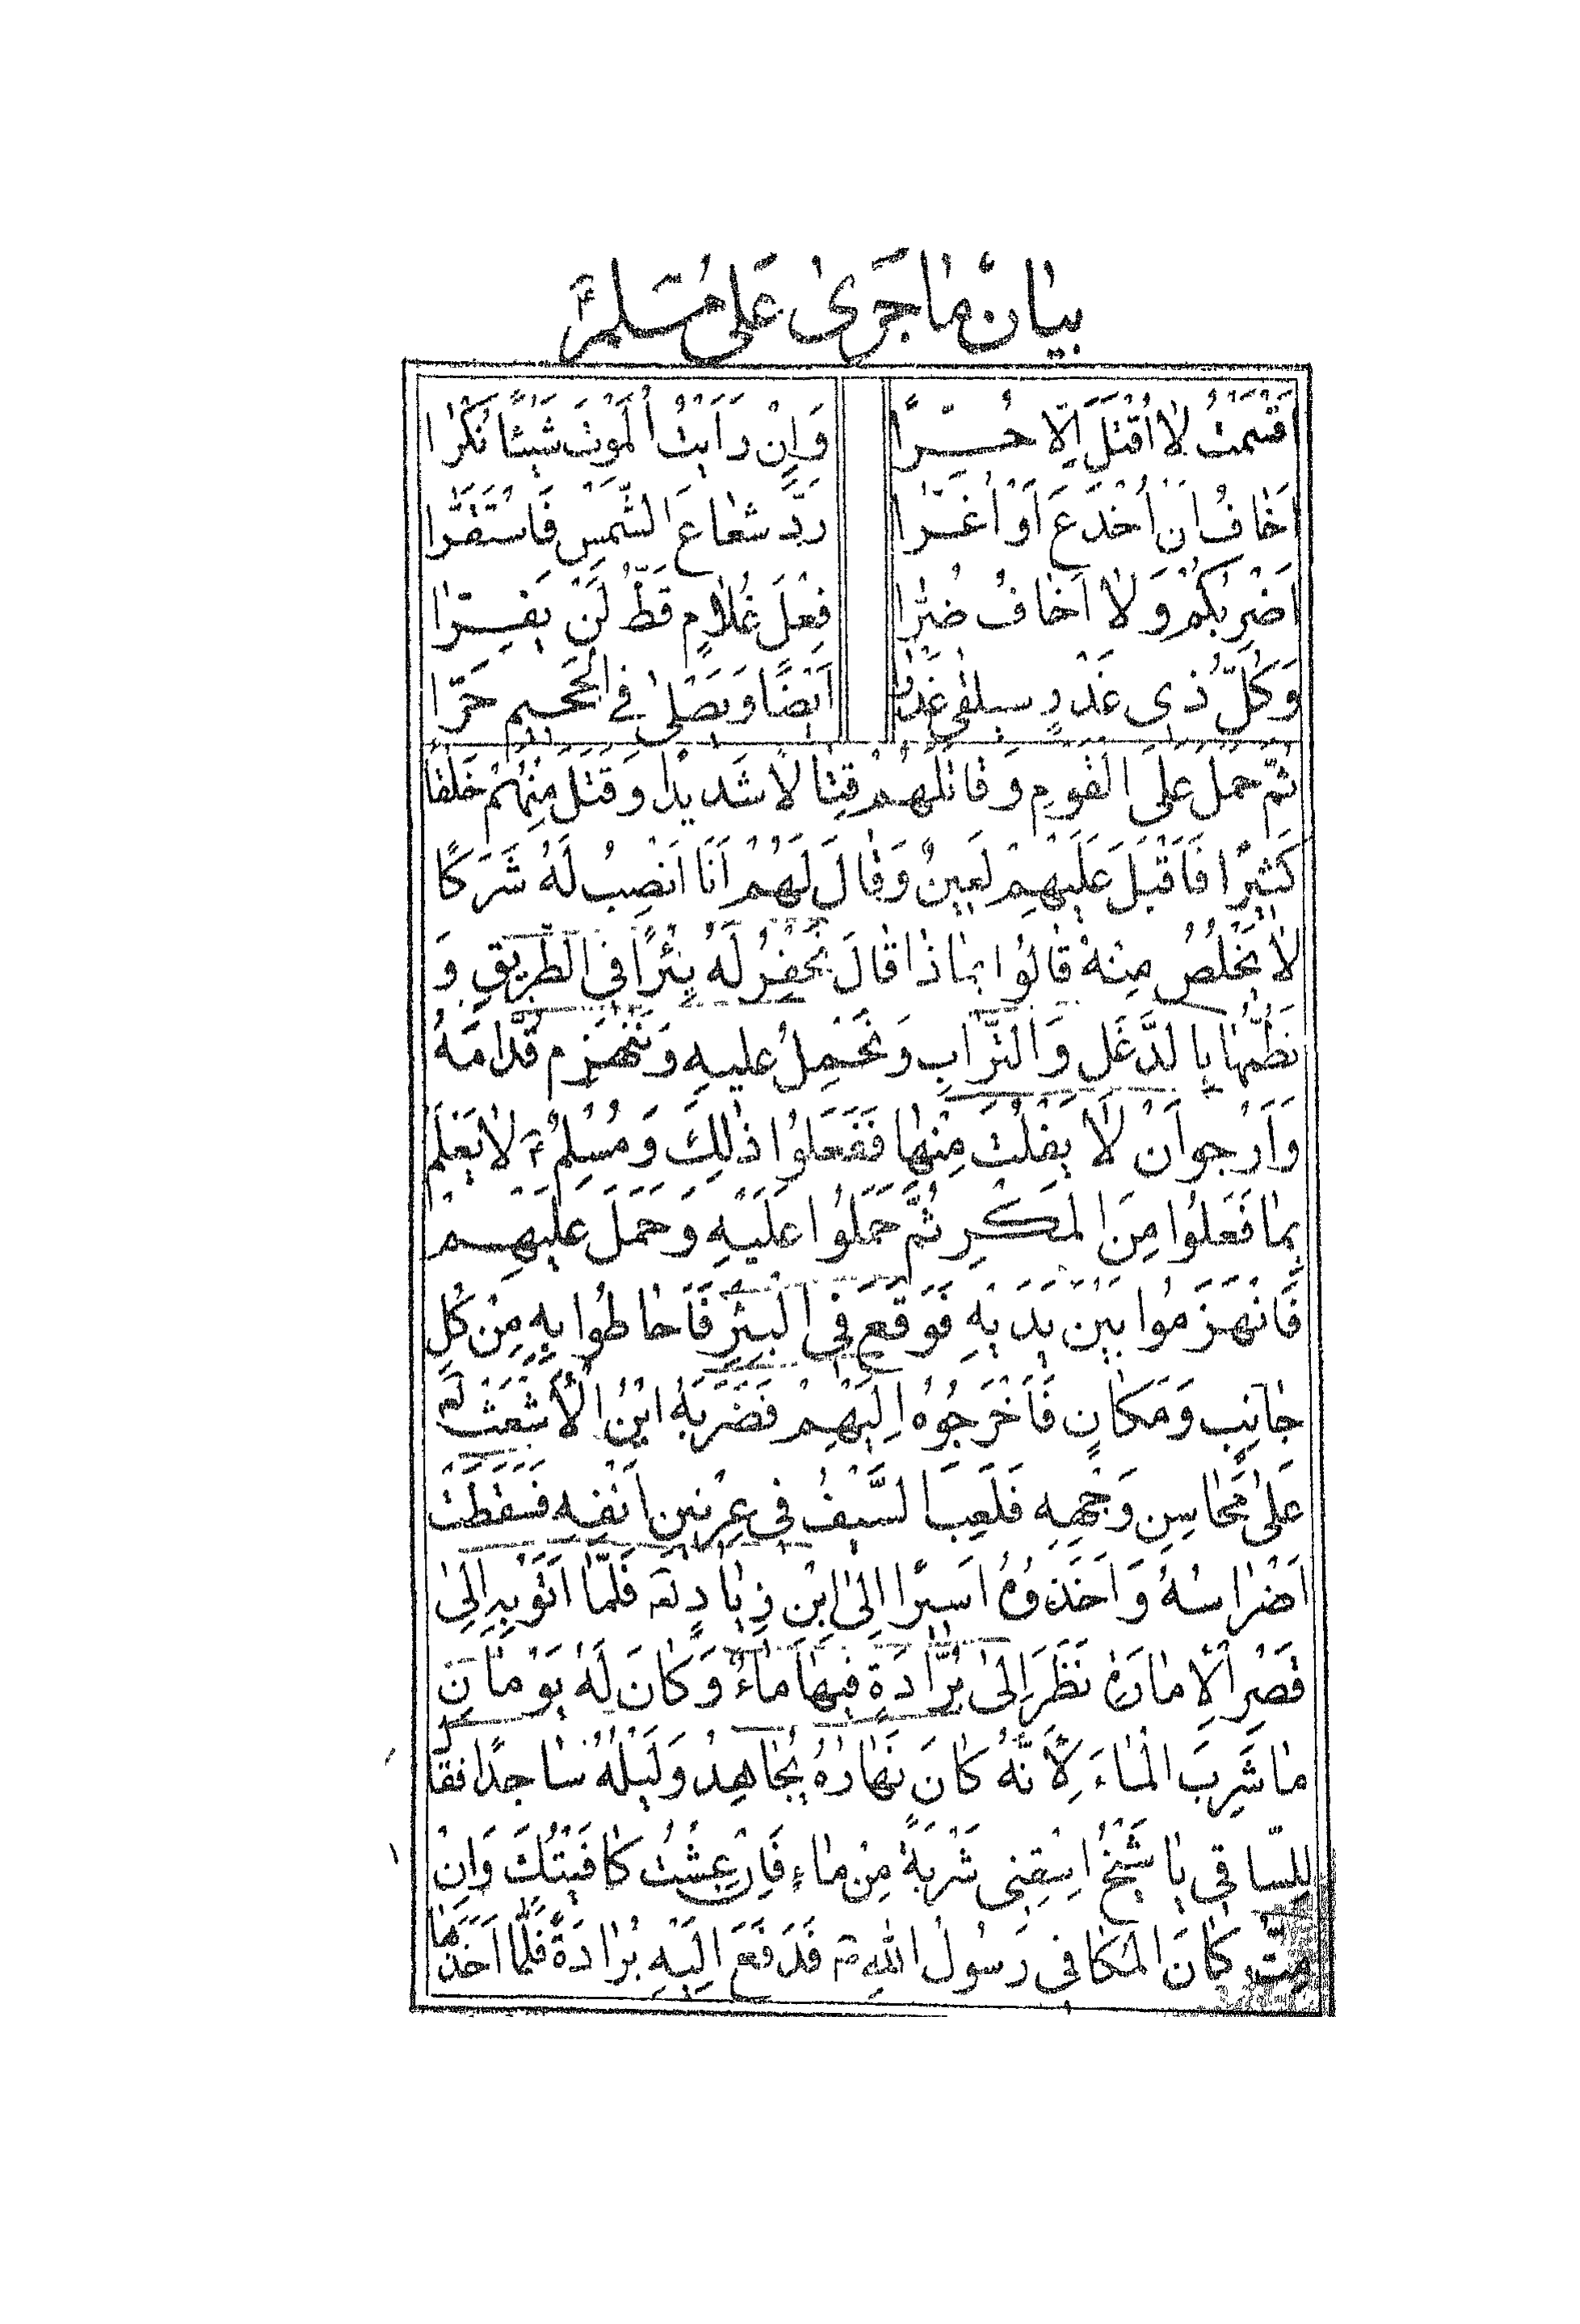 بيان ما جرى على مسلم ع
اَقْسَمْتُ لا اُقْتَلُ اِلّا حُــرًّا وَاِنْ رَاَيْتُ الْمَوْتَ شَيْئًا نُكْرًا
اَخافُ اَنْ اُخْدَعَ اَوْ اُغَــرّا رَدَّ شُعاعَ الشَّمْسِ فَاسْتَقَرّا
اَضْرِبُكُمْ وَلا اَخافُ ضُرّا فِعْلَ غُلامٍ قَطُّ لَنْ يَفِــرّا
وَكُلُّ ذى غَدْرٍ سيلقى غَدْرًا اَيْضًا وَيَصْلى فِي الْجَحيمِ حَرّا
ثُمَّ حَمَلَ عَلَى الْقَوْمِ وَقاتَلَهُمْ قِتالًا شَديدًا وَقَتَلَ مِنْهُمْ خَلْقًا
كَثيرًا فَاَقْبَلَ عَلَيْهِمْ لَعينٌ وَقالَ لَهُمْ اَنَا اَنْصِبُ لَهُ شَرَكًا
لا يَخْلُصُ مِنْهُ قالُوا بِماذا قالَ نَحْفِرُ لَهُ بِئْرًا فِي الطَّريقِ وَ
نَطُمُّها بِالدَّغَلِ وَالتُّرابِ وَنَحْمِلُ عَلَيهِ وَنَنْهَزِم قُدّامَهُ
وَاَرْجو اَنْ لا يَفْلُتَ مِنْها فَفَعَلُوا ذلِكَ وَمُسْلِمٌ ع لا يَعْلَم
بِما فَعَلُوا مِنَ الْمَكْرِ ثُمَّ حَمَلُوا عَلَيْهِ وَحَمَلَ عَلَيْهِــمْ
فَانْهَزَمُوا بَيْنَ يَدَيْهِ فَوَقَعَ فِي الْبِئْرِ فَاَحاطُوا بِهِ مِنْ كُلِّ
جانِبٍ وَمَكانٍ فَاَخْرَجُوهُ اِلَيْهِمْ فَضَرَبَهُ ابْنُ الْاَشْعَثِ لع
عَلى مَحاسِنِ وَجْهِهِ فَلَعِبَ السَّيْفُ في عِرْنينِ اَنْفِهِ فَسَقَطَتْ
اَضْراسُهُ وَاَخَذُوهُ اَسيرًا اِلَى ابْنِ زِيادٍ لع فَلَمّا اَتَوْ بِهِ اِلى
قَصْرِ الْاِمارَةِ نَظَرَ اِلى بُرّادَةٍ فيها ماءٌ وَكانَ لَهُ يَوْمانِ
ما شَرِبَ الْماءَ لِاَنَّهُ كانَ نَهارَهُ يُجاهِدُ وَلَيْلَهُ ساجِدًا فقا
لِلسّاقي يا شَيْخُ اِسْقِنى شَرْبَةً مِنْ ماءٍ فَاِنْ عِشْتُ كافَيْتُكَ وَاِنْ
مِتُّ كانَ الْمُكافي رَسُولَ اللهِ ص فَدَفَعَ اِلَيْهِ بُرادَةً فَلَمّا اَخَذَها